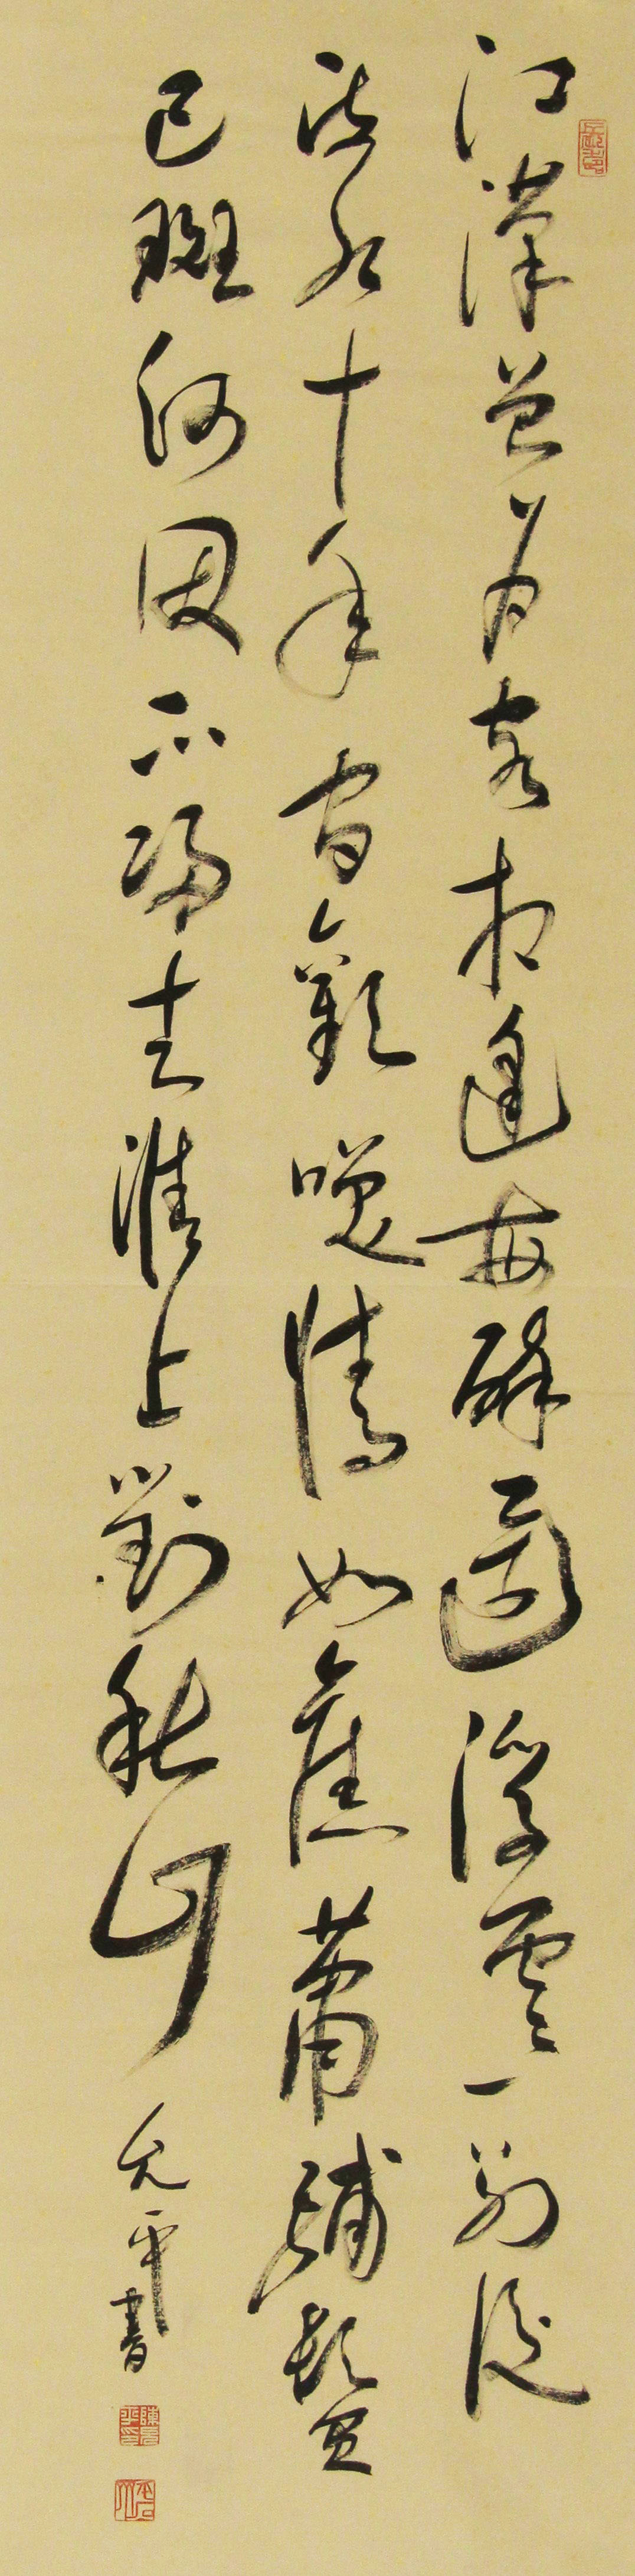 江漢曾為客相逢每醉還浮雲一別後
流水十年間歡咲情如舊蕭疏鬢
已斑何因不歸去淮上對秋山
允平書